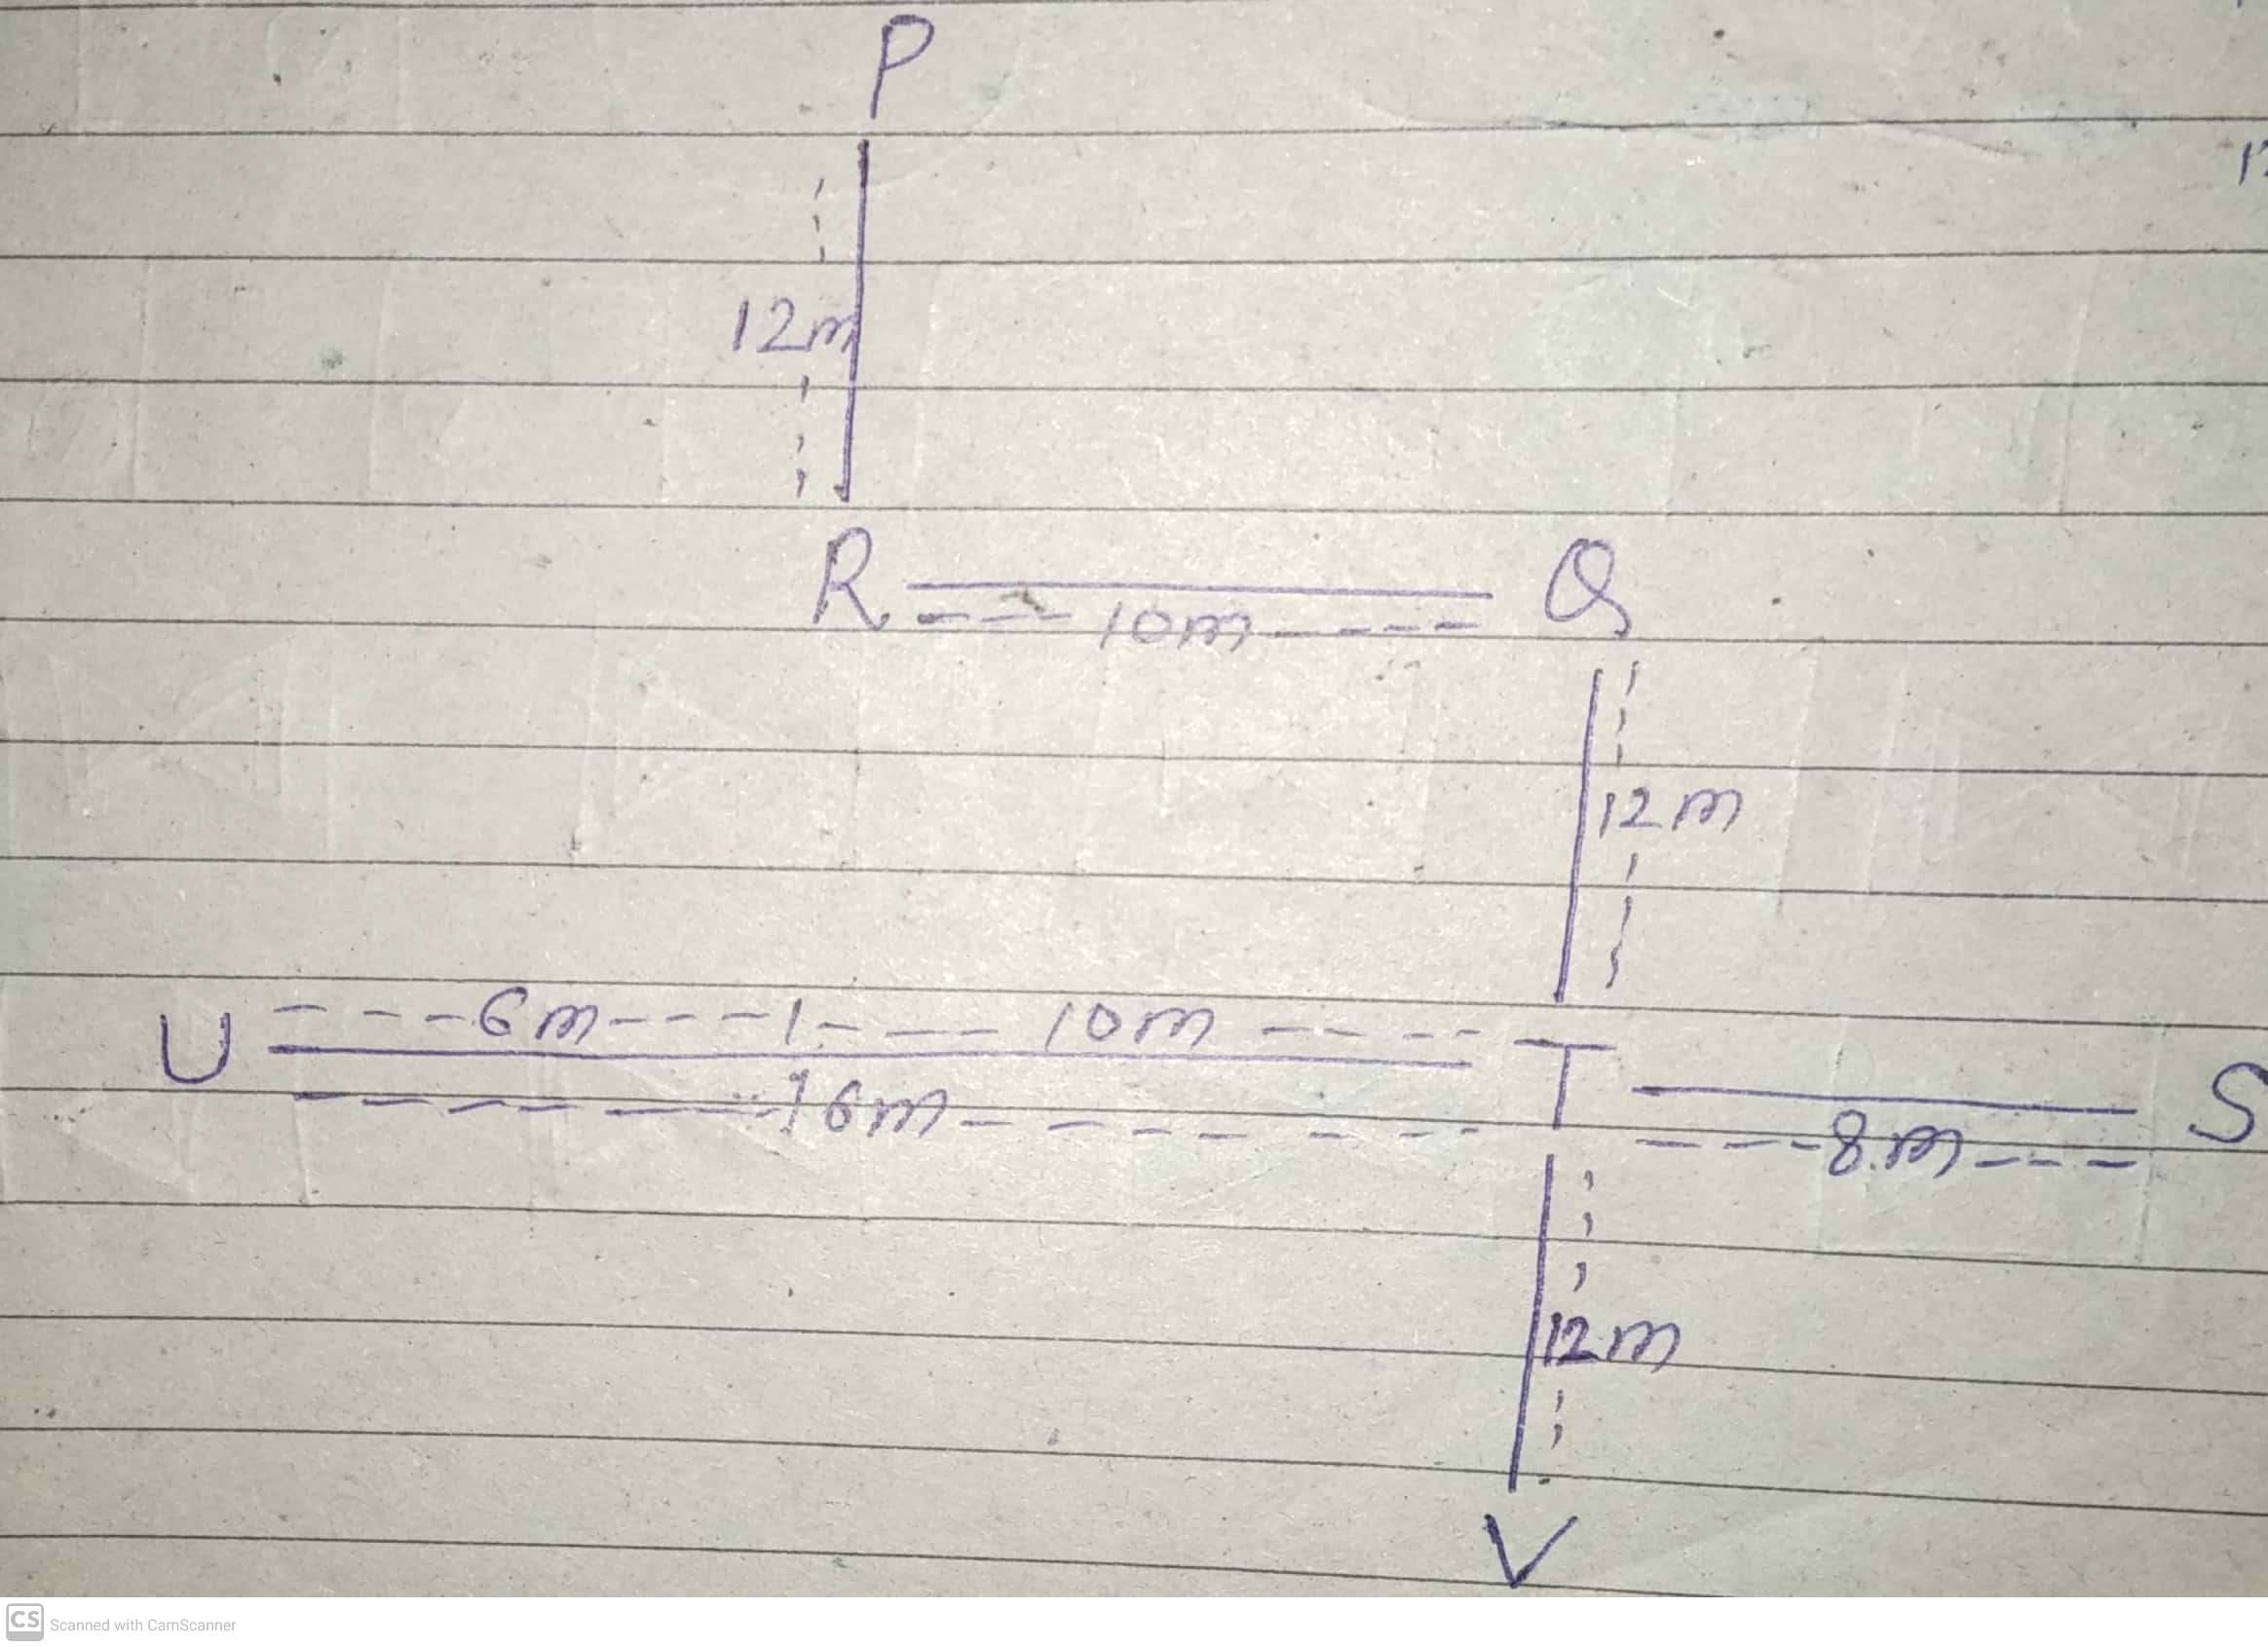 P
12m
R
10m
Q
12m
U
6m
10m
T
16m
8m
S
12m
V
CS
Scanned with CamScanner